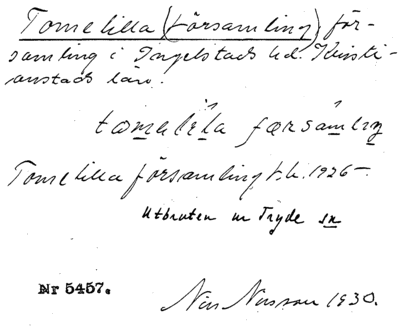 Tomelilla (församling), för-
samling i Ingelstads hd. Kristi-
anstads län.
tomelila færsamlıŋ
Tomelilla församling t.h. 1926-.
Utbruten ur Tryde sn
Nr 5457.
Nils Nilsson 1930.